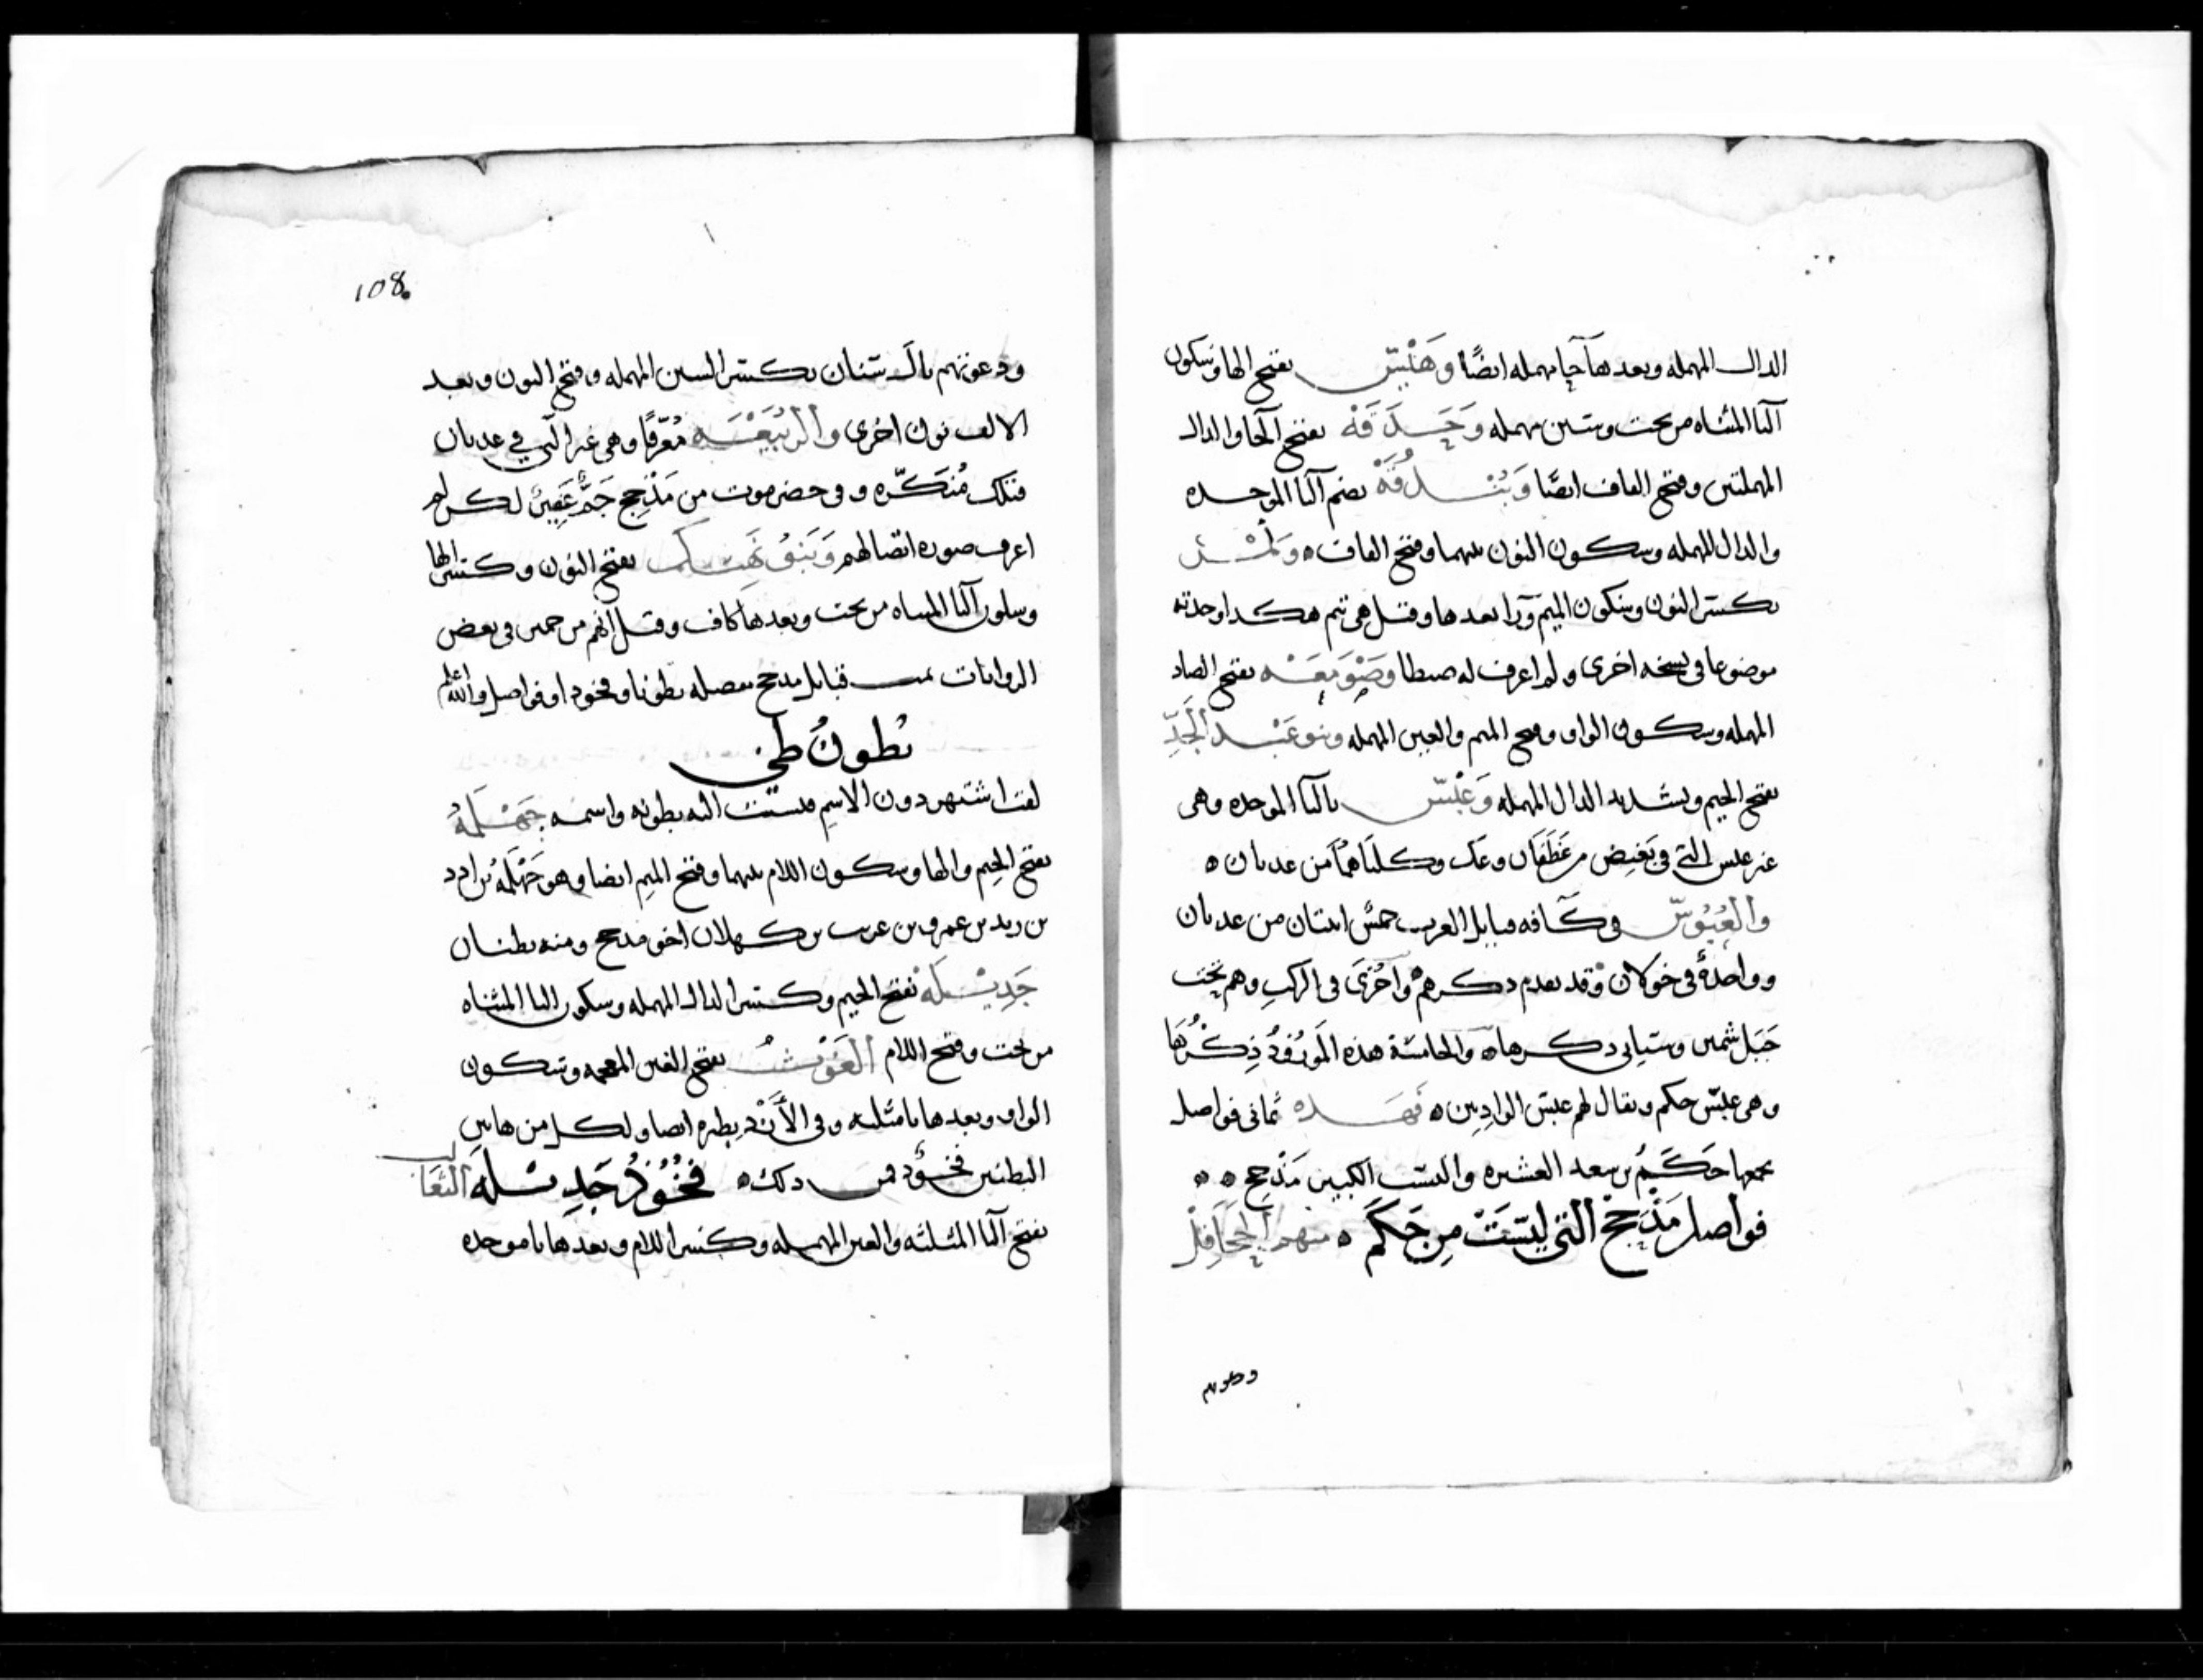 الدال المهمله وبعدها حا مهمله ايضًا وَهَيْسٌ بفتح الها وسكون
اليا المثناه من تحت وسين مهمله وَحَدَقَهْ بفتح الحا والدال
المهملتين وفتح القاف ايضًا وَبُنْدُقَهْ بضم البا الموحده
والدال المهمله وسكون النون بينهما وفتح القاف ه وَنِمْر
بكسر النون وسكون الميم ورا بعدها وقيل هى نتم هكدا وجدته
موضوعا فى نسخه اخرى ولم اعرف له ضبطا وَصَوْمَعَهْ بفتح الصاد
المهمله وسكون الواو وفتح الميم والعين المهمله وبنو عَبْد الجَدِّ
بفتح الجيم وتشديد الدال المهمله وَعَبْسٌ بالبا الموحده وهى
غير عبس التى فى بَغِيض من غَطَفَان وعَك وكلتاهما من عدنان ه
والعُبُوسٌ فى كافه قبايل العرب خمسٌ اثنتان من عدنان
وواحدةٌ فى خولان وقد تقدم دكرهم واخرَى فى الركب وهم تحت
جَبَل شمير وسياتى دكرها ه والخامسة هذه المَورُود ذِكْرُهَا
وهى عَبْسٌ حكم ويقال لهم عبس الوادِيين ه فهـده ثمانى فواصل
يجمعها حَكَمُ بن سعد العشيره والنسب الكبير مَذْحِج ه ه
فواصل مَذْحِجْ التى ليسَتْ مِن حَكَم ه منهم الجَحَافِل
ودعوتهم
108
ودعوتهم بال سنان بكسر السين المهمله وفتح النون وبعد
الالف نون اخرى والرُّبَيْعَه مُعَرَّفًا وهى غير التى فى عدنان
فتلك مُنكَّره وفى حضرموت من مَذْحِجِ جَمٌّ غَفِيرٌ لكن لم
اعرف صوره اتصالهم وَبَنوُ نَهِيك بفتح النون وكسر الها
وسكون اليا المثناه من تحت وبعدها كاف وقيل انهم من حمير فى بعض
الروايات تمت قبايل مدحج مفصله بطونا وفخودا وفواصل والله اعلم
بُطونُ طَيٍّ
لقب اشتهر دون الاسم فنسبت اليه بطونه واسمه جَهْلَمَهُ
بفتح الجيم والها وسكون اللام بينهما وفتح الميم ايضا وهو جَهْلَمَهُ بن ادد
بن زيد بن عمرو بن عريب بن كهلان اخو مدحج ومنه بطنان
جَدِيْلَهْ بفتح الجيم وكسر الدال المهمله وسكون اليا المثناه
من تحت وفتح اللام الغَوْثُ بفتح الغين المعجمه وسكون
الواو وبعدها ثا مثلثه وفى الأَزْد نظيره ايضا ولكل من هاتين
البطنين فخوُد فمن دلك ه فُخُوْذُ جَدِيْلَه الثَعَالب
بفتح الثا المثلثه والعين المهمله وكسر اللام وبعدها با موحده